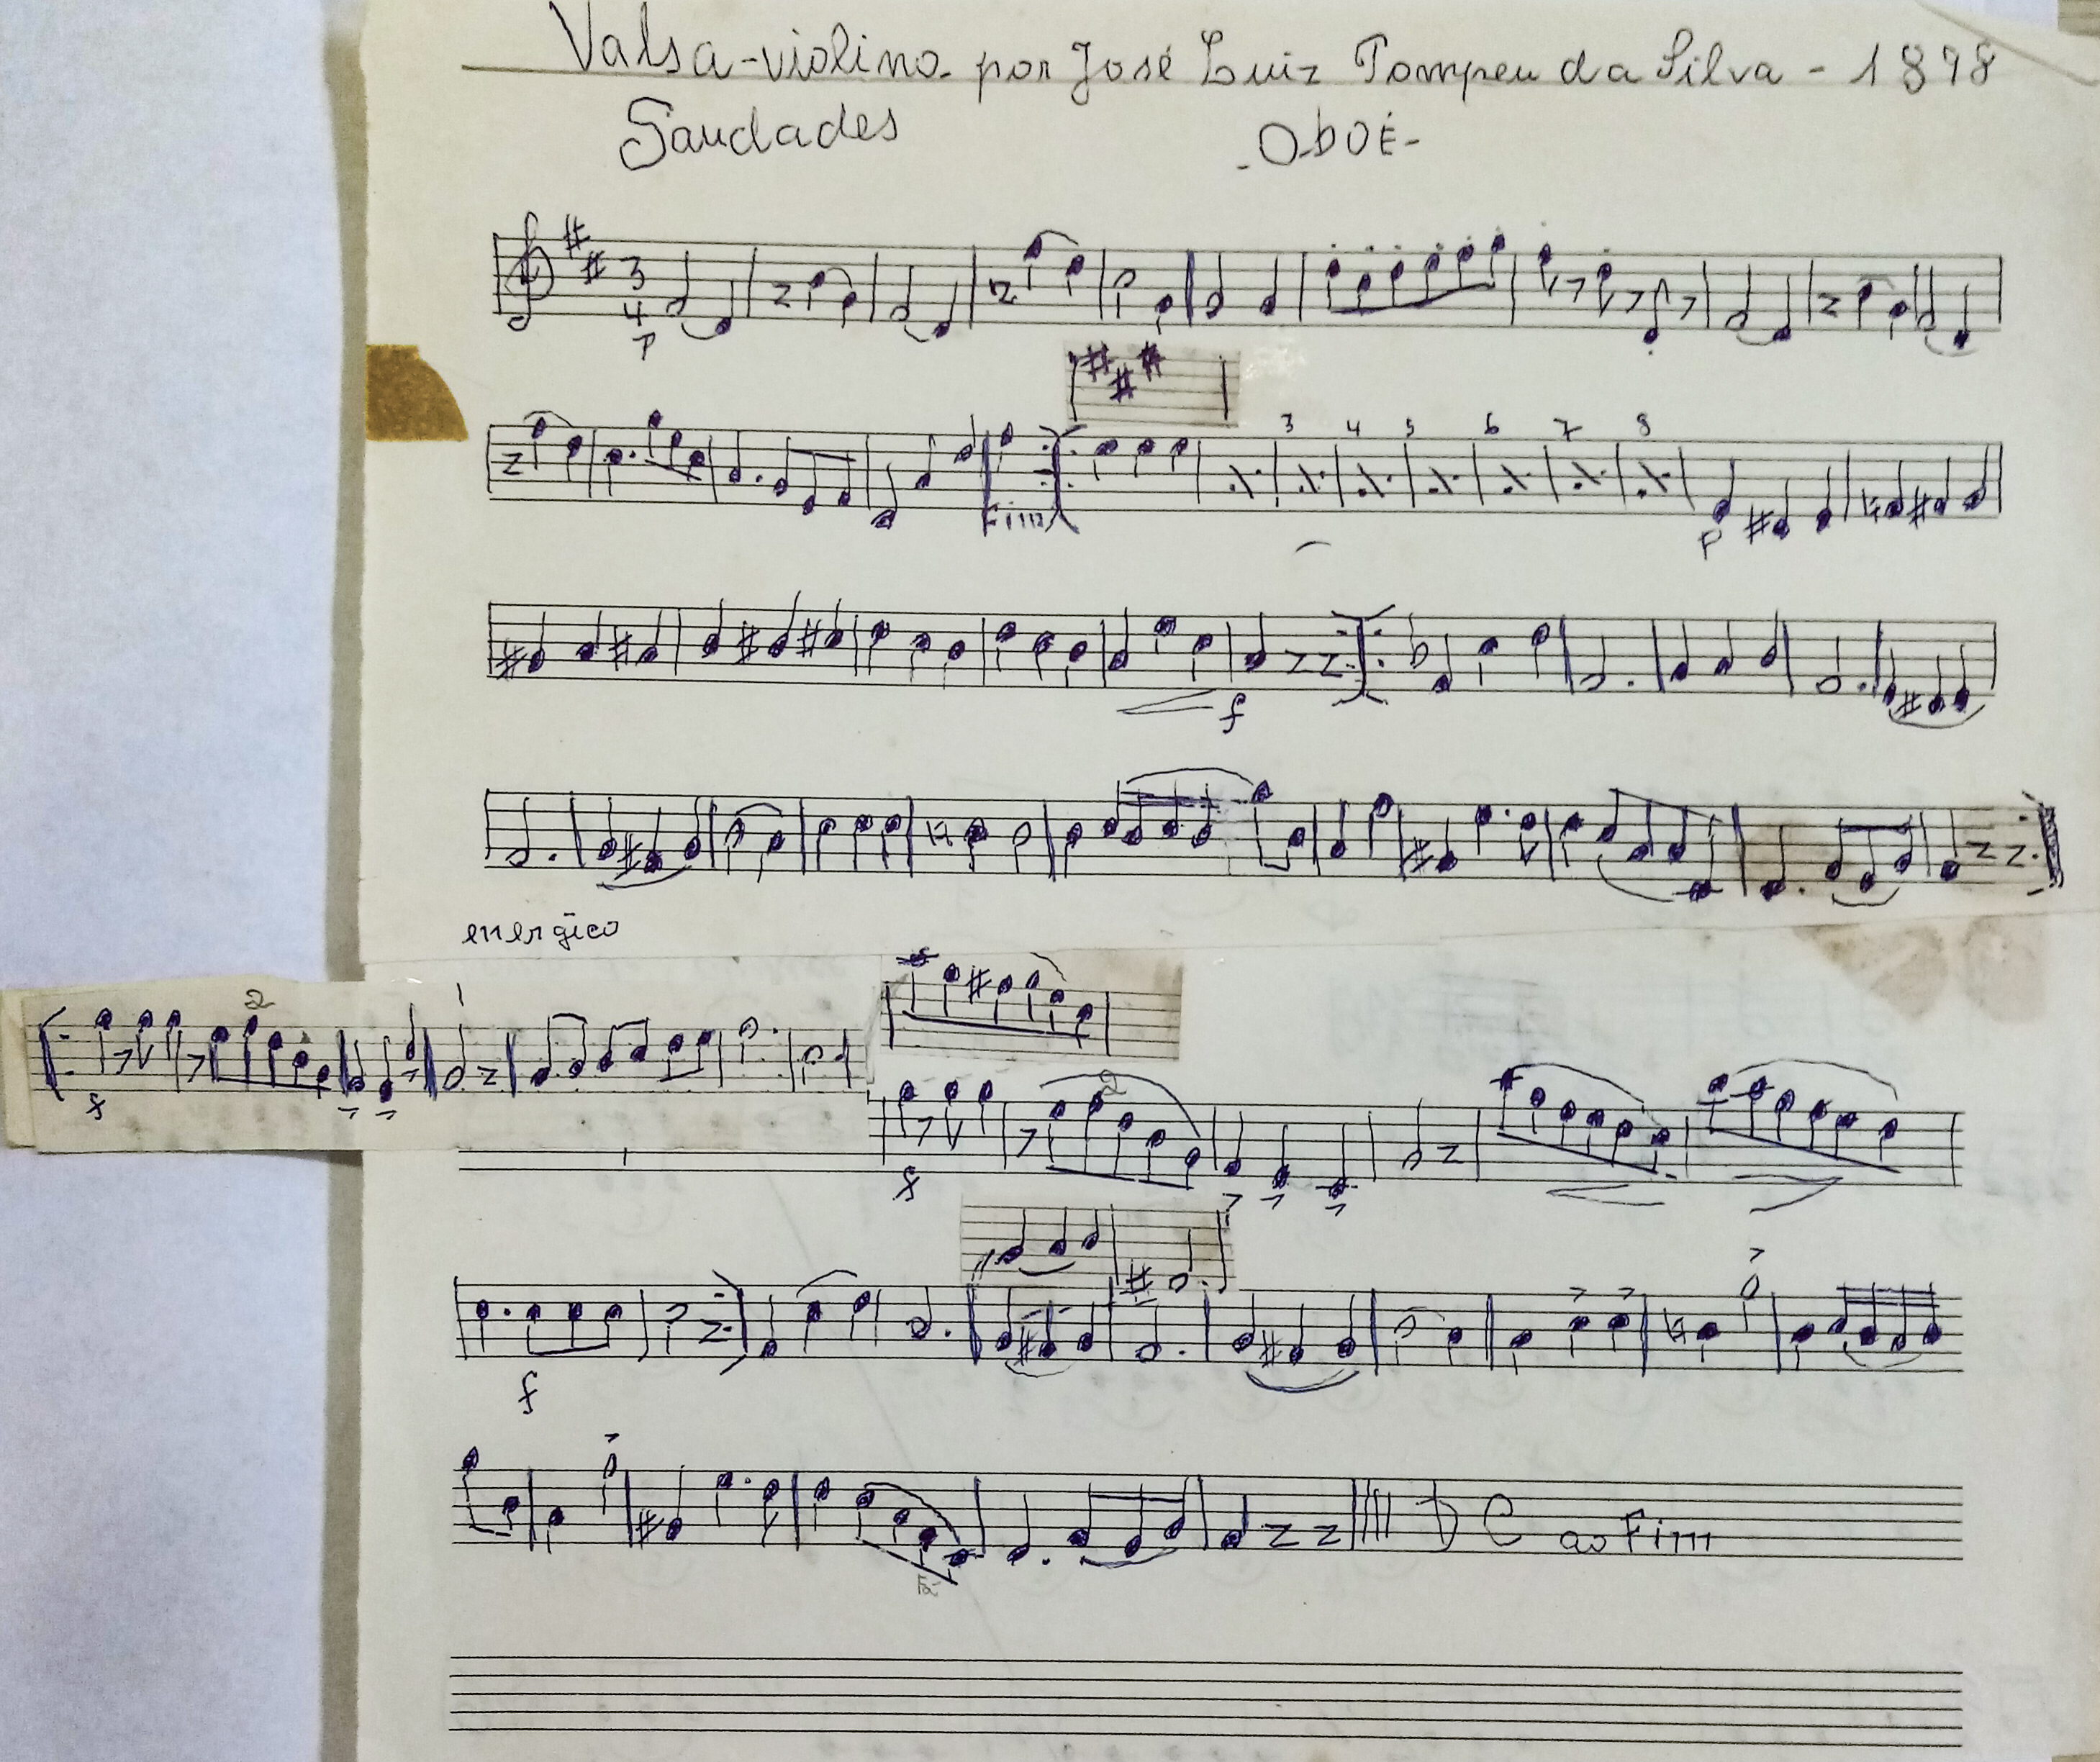 Valsa-violino- por José Luiz Pompeu da Silva - 1878
Saudades -Oboé-
3
4
p
3 4 5 6 7 8
Fim
p
f
energico
2 1
f
2
f
f
D C ao Fim